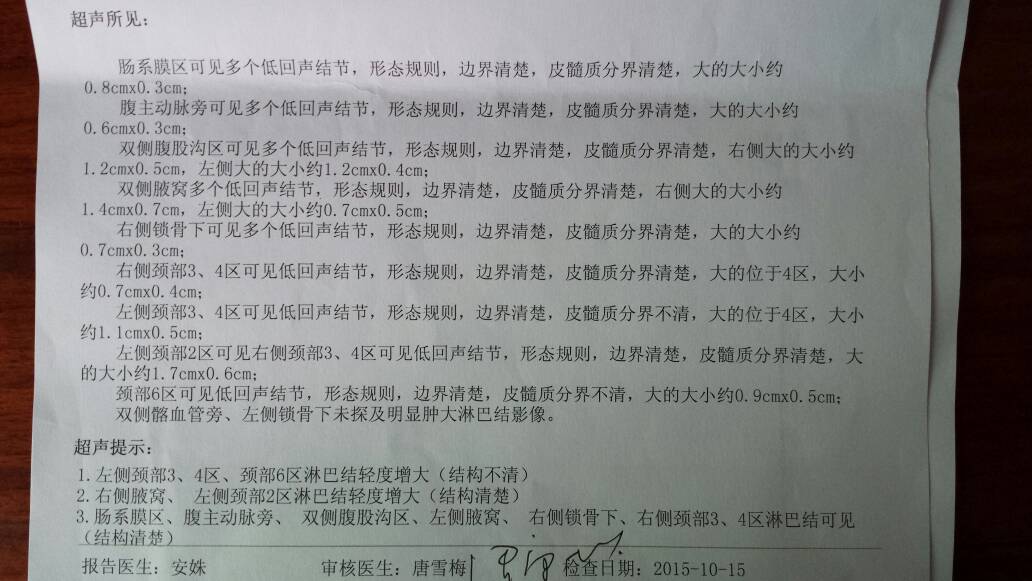 超声所见：
肠系膜区可见多个低回声结节，形态规则，边界清楚，皮髓质分界清楚，大的大小约
0.8cmx0.3cm；
腹主动脉旁可见多个低回声结节，形态规则，边界清楚，皮髓质分界清楚，大的大小约
0.6cmx0.3cm；
双侧腹股沟区可见多个低回声结节，形态规则，边界清楚，皮髓质分界清楚，右侧大的大小约
1.2cmx0.5cm，左侧大的大小约1.2cmx0.4cm；
双侧腋窝多个低回声结节，形态规则，边界清楚，皮髓质分界清楚，右侧大的大小约
1.4cmx0.7cm，左侧大的大小约0.7cmx0.5cm；
右侧锁骨下可见多个低回声结节，形态规则，边界清楚，皮髓质分界清楚，大的大小约
0.7cmx0.3cm；
右侧颈部3、4区可见低回声结节，形态规则，边界清楚，皮髓质分界清楚，大的位于4区，大小
约0.7cmx0.4cm；
左侧颈部3、4区可见低回声结节，形态规则，边界清楚，皮髓质分界不清，大的位于4区，大小
约1.1cmx0.5cm；
左侧颈部2区可见右侧颈部3、4区可见低回声结节，形态规则，边界清楚，皮髓质分界清楚，大
的大小约1.7cmx0.6cm；
颈部6区可见低回声结节，形态规则，边界清楚，皮髓质分界不清，大的大小约0.9cmx0.5cm；
双侧髂血管旁、左侧锁骨下未探及明显肿大淋巴结影像。
超声提示：
1.左侧颈部3、4区、颈部6区淋巴结轻度增大（结构不清）
2.右侧腋窝、 左侧颈部2区淋巴结轻度增大（结构清楚）
3.肠系膜区、腹主动脉旁、 双侧腹股沟区、左侧腋窝、 右侧锁骨下、右侧颈部3、4区淋巴结可见
（结构清楚）
报告医生：安姝 审核医生：唐雪梅 检查日期：2015-10-15